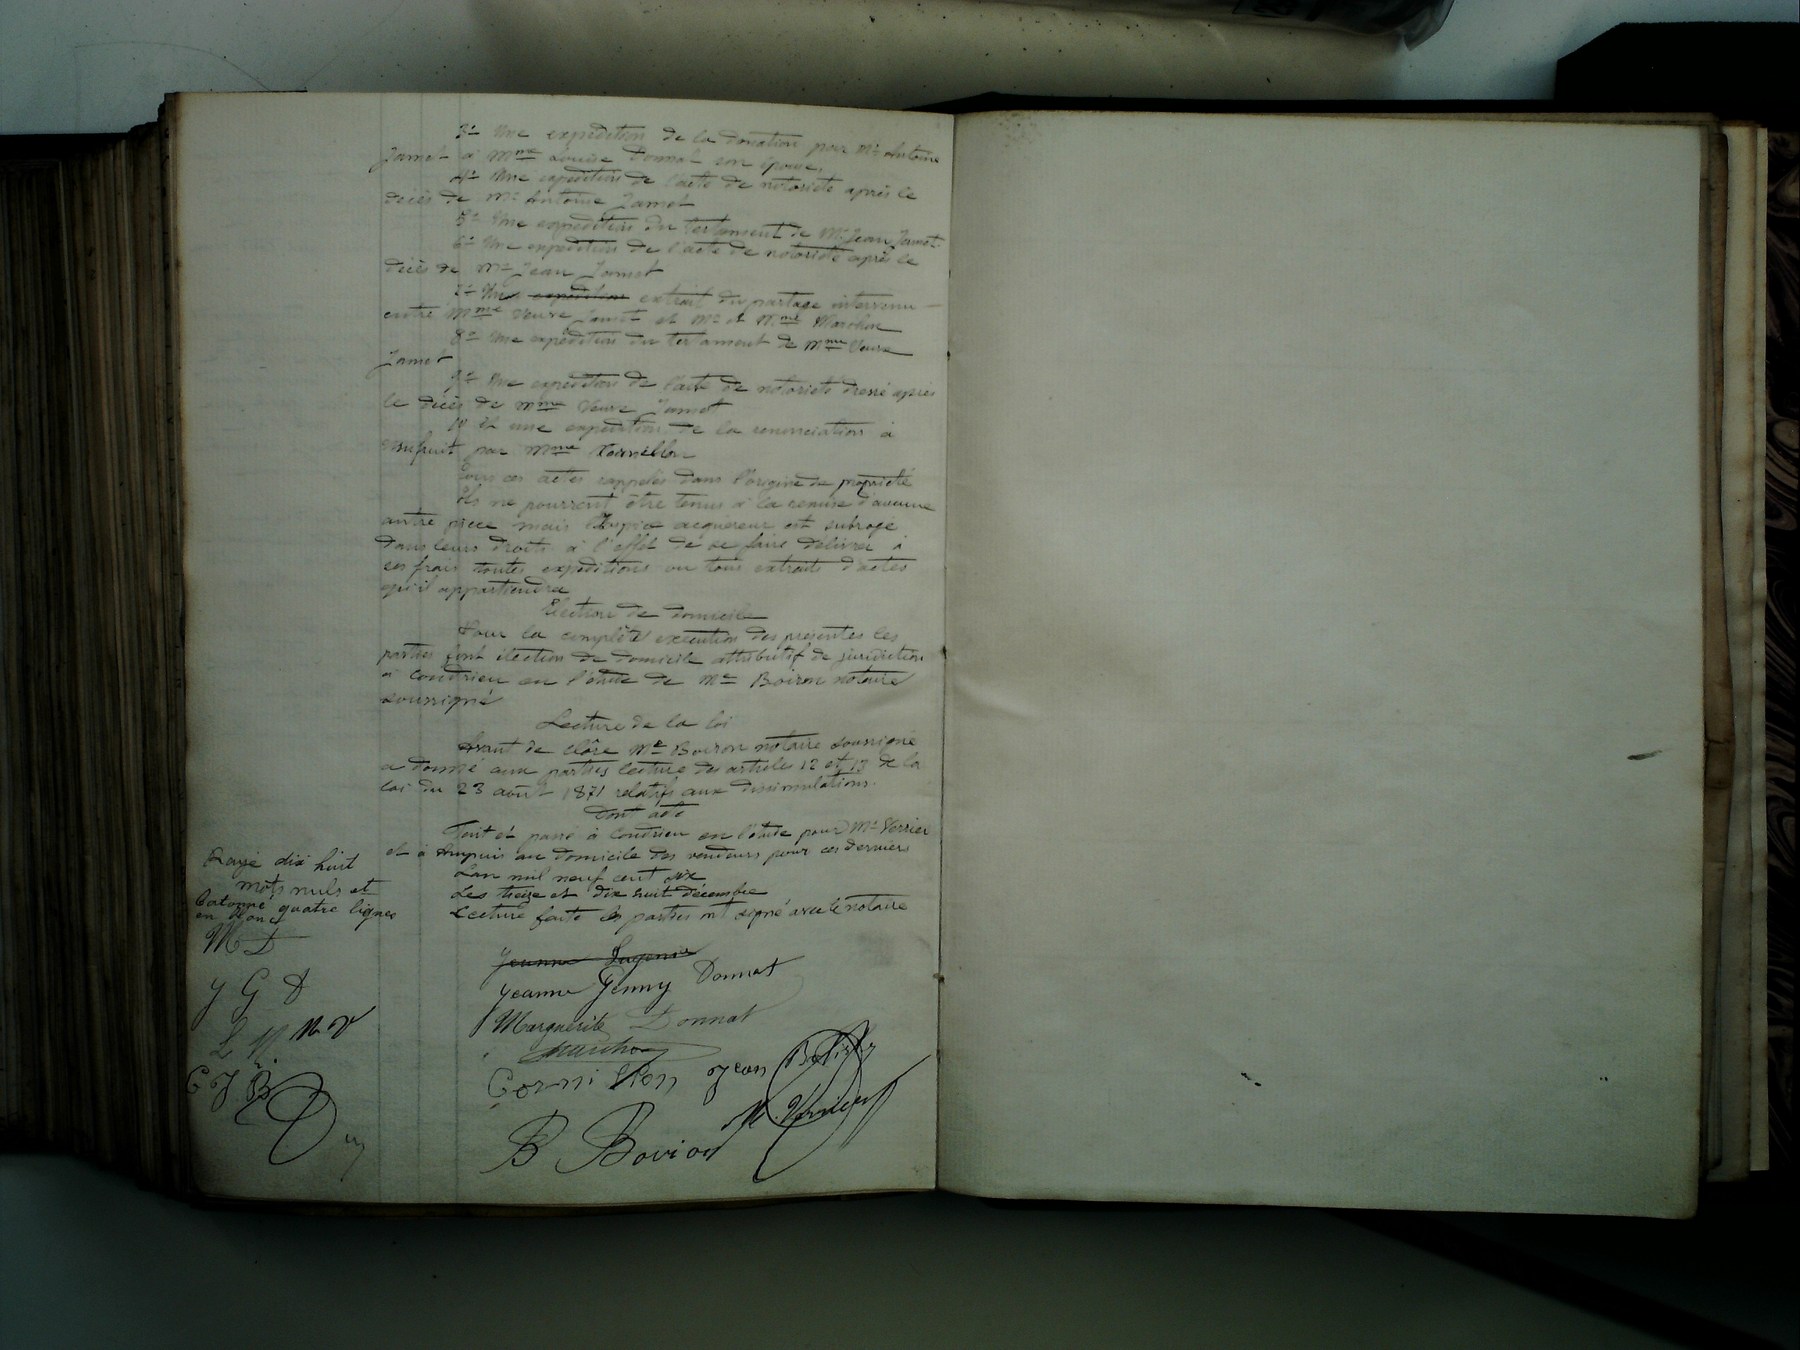 3º Une expédition de la donation par Mr Antoine
Jamet à Mme Louise Donnat son épouse,
4º Une expédition de l'acte de notoriété après le
décès de Mr Antoine Jamet
5º Une expédition du testament de Mr Jean Jamet
6º Une expédition de l'acte de notoriété après le
décès de Mr Jean Jamet
7º Une expédition extrait du partage intervenu
entre Mme Veuve Jamet et Mr et Mme Marchon
8º Une expédition du testament de Mme Veuve
Jamet
9º Une expédition de l'acte de notoriété dressé après
le décès de Mme Veuve Jamet
10º Et une expédition de la renonciation à
usufruit par Mme
Tous ces actes rappelés dans l'origine de propriété
Ils ne pourront être tenus à la remise d'aucune
autre pièce mais l'hospice acquéreur est subrogé
dans leurs droits à l'effet de se faire délivrer à
ses frais toutes expéditions ou tous extraits d'actes
qu'il appartiendra
Election de domicile
Pour la complète exécution des présentes les
parties font élection de domicile attributif de juridiction
à Condrieu en l'étude de Me Boiron notaire
soussigné
Lecture de la loi
Avant de clôre Me Boiron notaire soussigné
a donné aux parties lecture des articles 12 et 13 de la
loi du 23 août 1871 relatifs aux dissimulations.
Dont acte
Fait et passé à Condrieu en l'étude pour Mr Verrier
et à Ampuis au domicile des vendeurs pour ces derniers
L'an mil neuf cent six
Les treize et dix huit décembre
Lecture faite les parties ont signé avec le notaire
Rayé dix huit
mots nuls et
batonné quatre lignes
en blanc
M D
J G D
L M
C J B
Jeanne Eugénie
Jeanne Jenny Donnat
Marguerite Donnat
Marchon
Cornillon Jean Batiste
M. Verrier
B Bovion